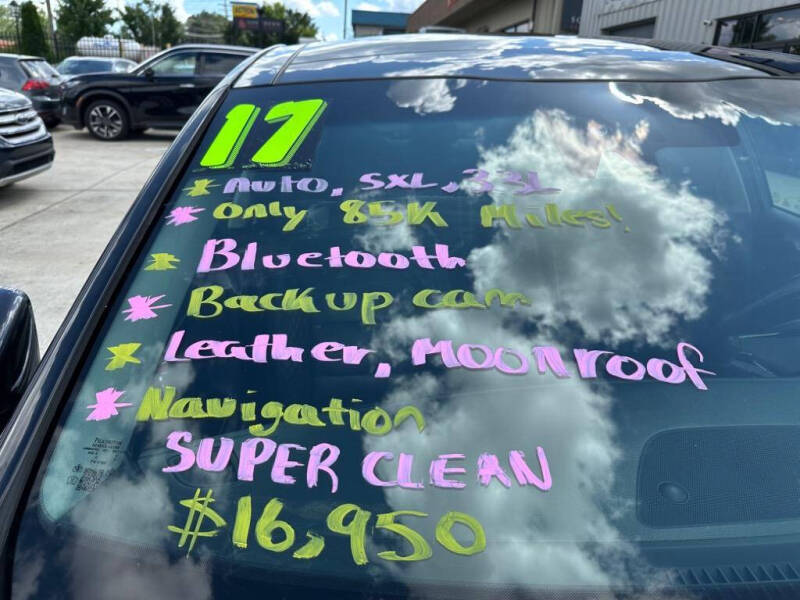 17
Auto, SXL, 3.3L
Only 85K Miles!
Bluetooth
Backup cam
Leather, Moonroof
Navigation
SUPER CLEAN
$16,950